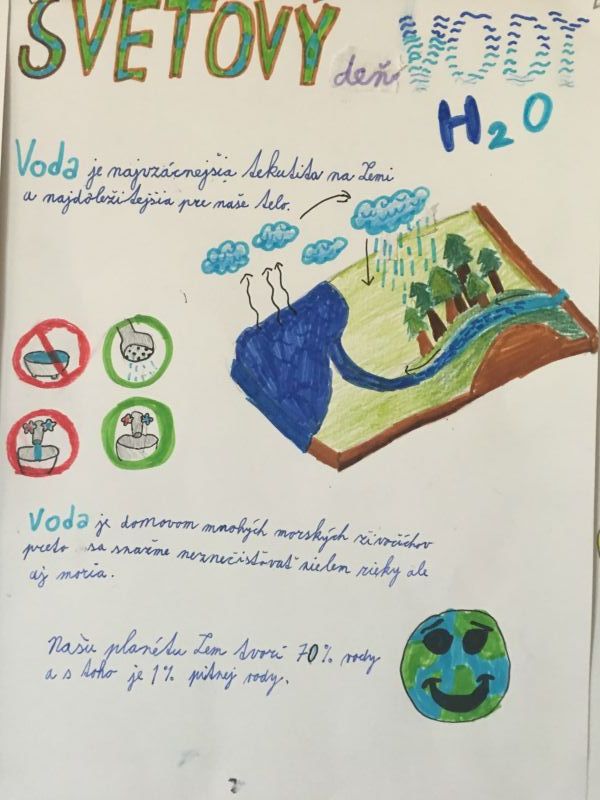 SVETOVÝ deň VODY
H2O
Voda je najvzácnejšia tekutita na Zemi
a najdôležitejšia pre naše telo.
Voda je domovom mnohých morských živočíchov
preto sa snažme neznečisťovať nielem rieky ale
aj moria.
Našu planétu Zem tvorí 70% vody
a s toho je 1% pitnej vody.